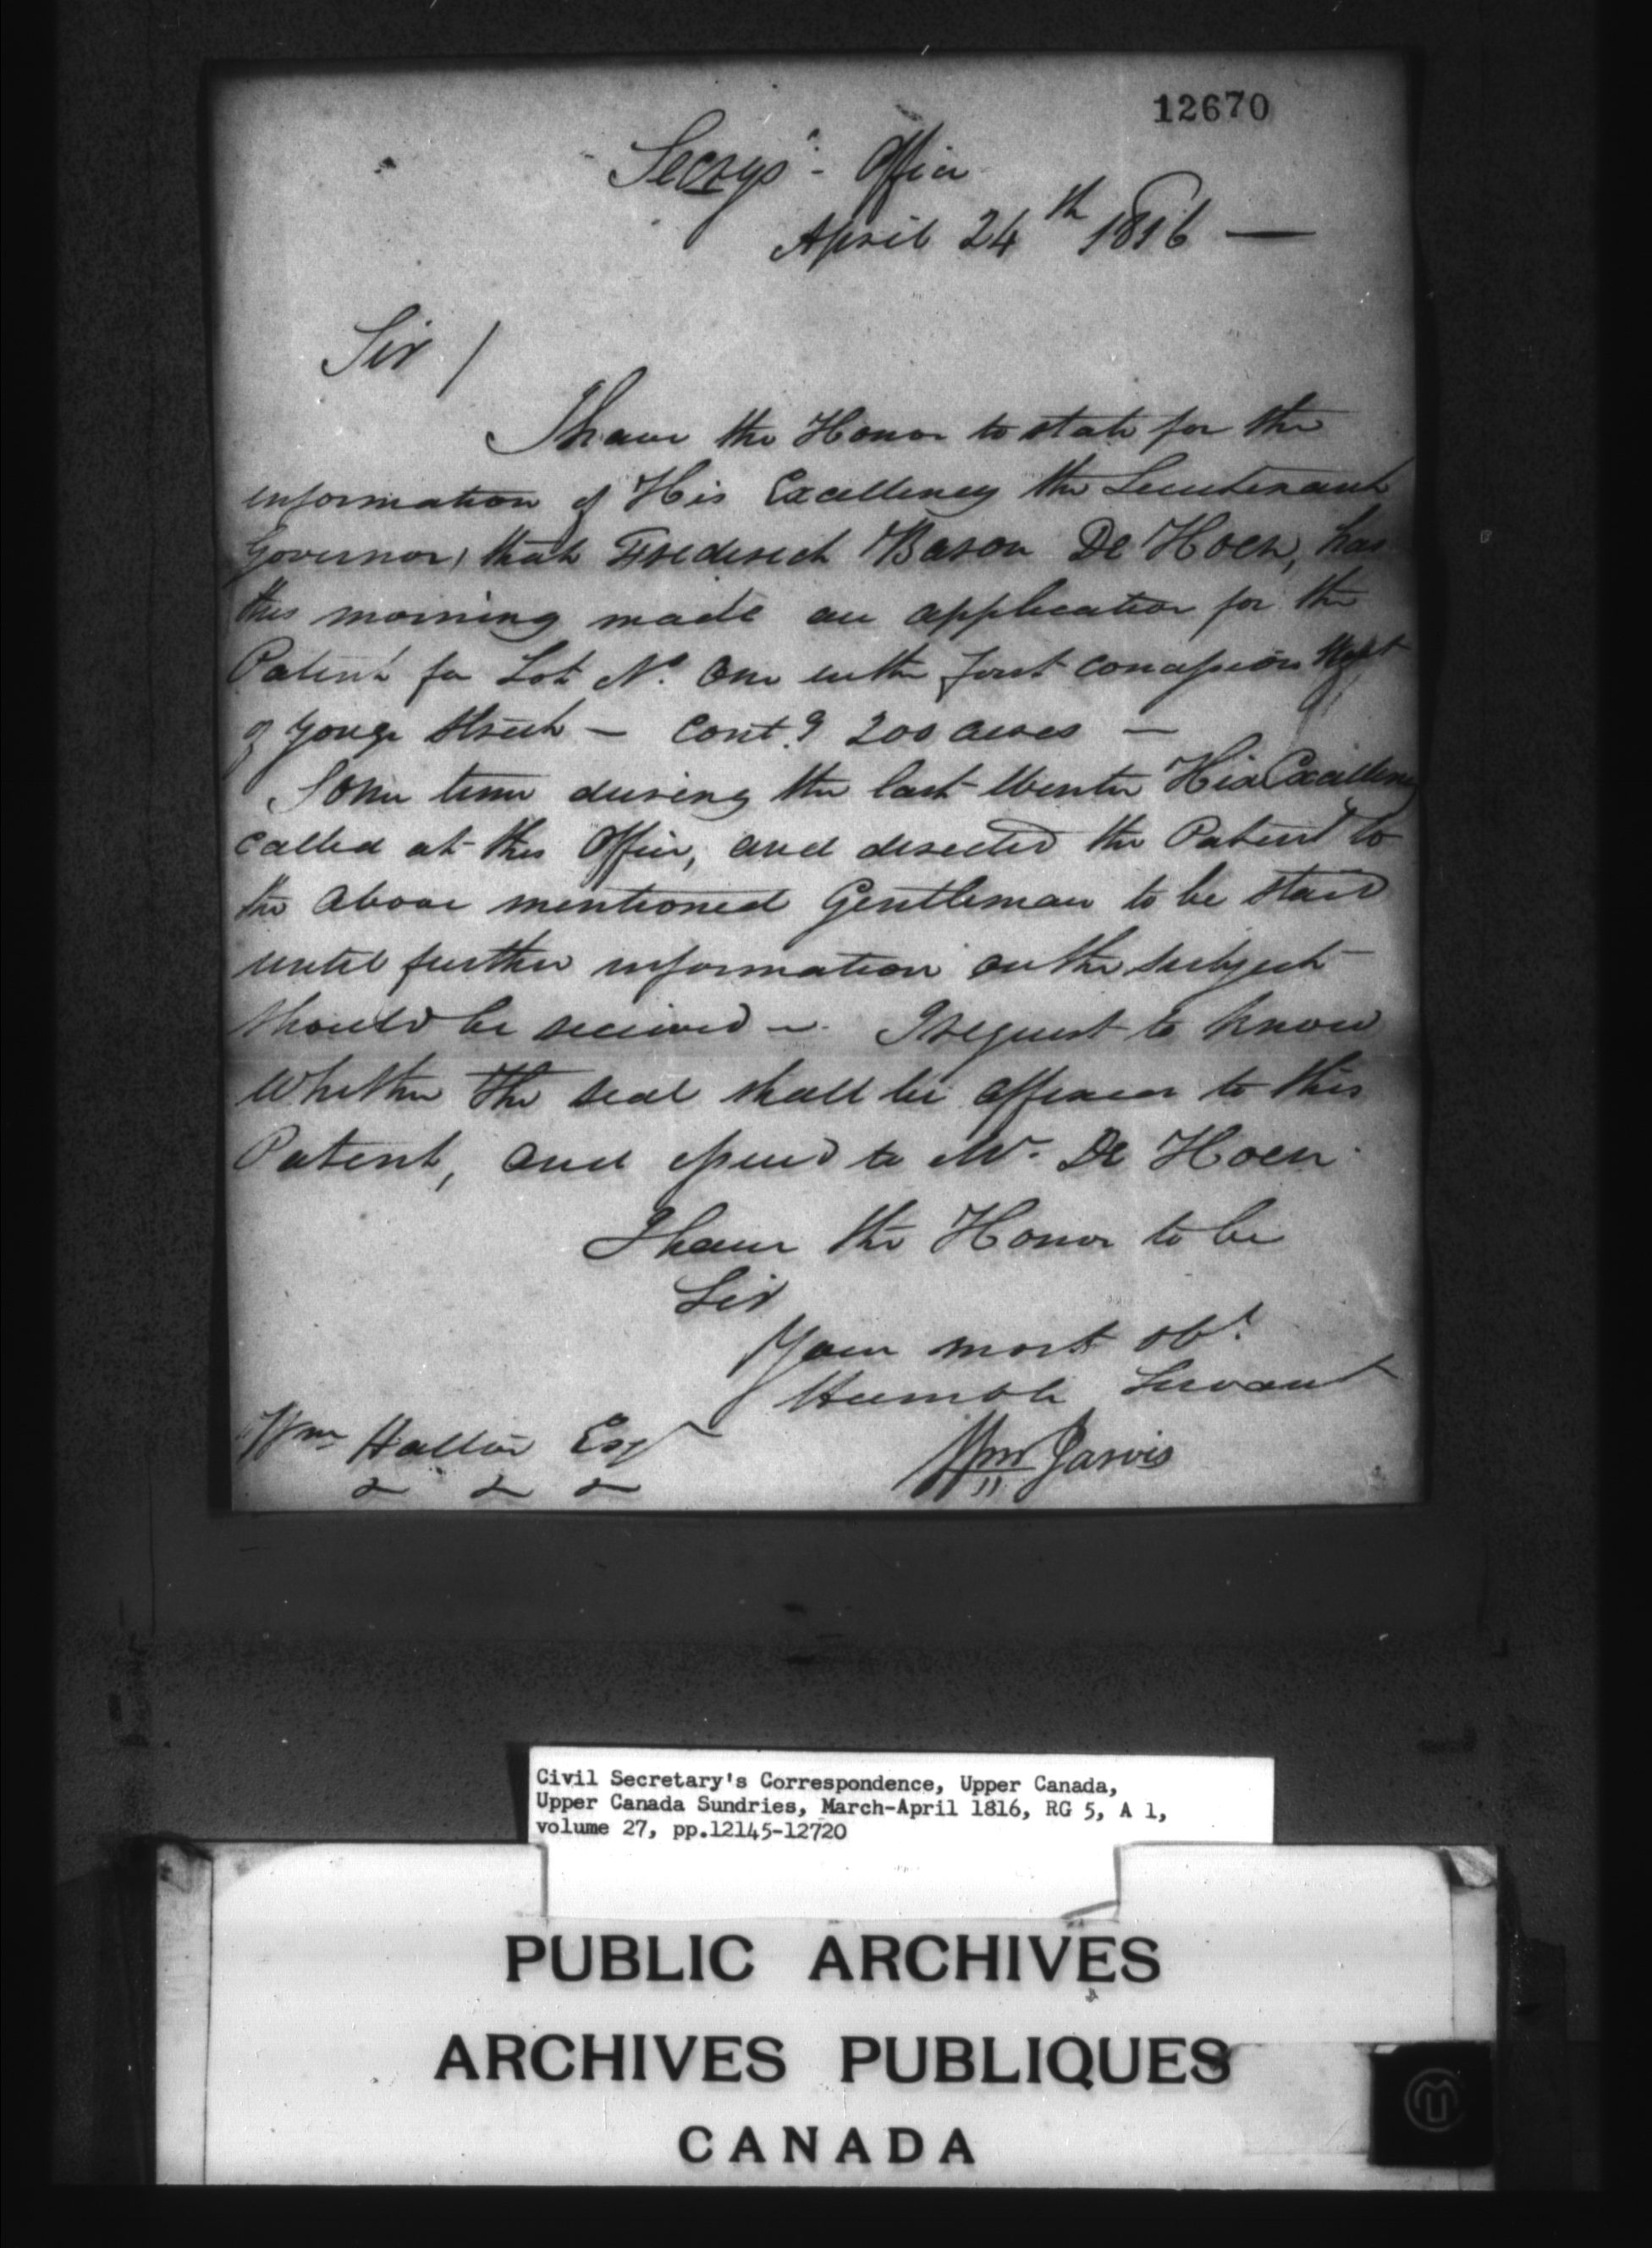 12670
Secrys - Office
April 24th 1816 —
Sir /
I have the Honor to state for the
information of His Excellency the Lieutenant
Governor, that Frederick Baron De Hoen, has
this morning made an application for the
Patent for Lot No. One in the first concession West
of Yonge Street — Contg 200 acres —
Some time during the last Winter His Excellency
called at this Office, and directed the Patent to
the above mentioned Gentleman to be staid
until further information on the subject
should be received — I request to know
Whether the seal shall be affixed to this
Patent, and issued to Mr. De Hoen.
I have the Honor to be
Sir
Your most obt.
Humble Servant
Wm Jarvis
Wm Halton Esqr
Civil Secretary's Correspondence, Upper Canada,
Upper Canada Sundries, March-April 1816, RG 5, A 1,
volume 27, pp.12145-12720
PUBLIC ARCHIVES
ARCHIVES PUBLIQUES
CANADA